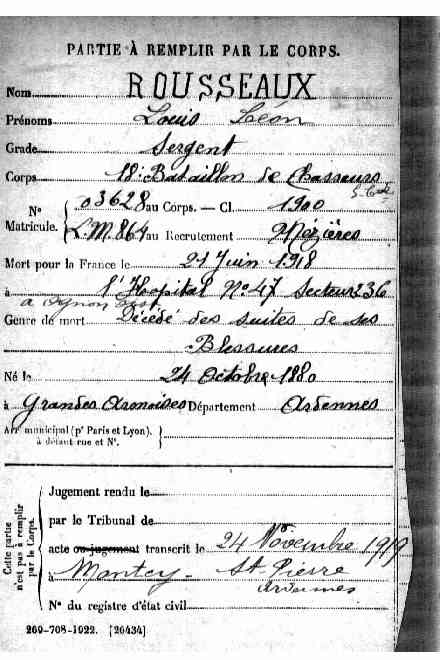 PARTIE À REMPLIR PAR LE CORPS.
Nom ROUSSEAUX
Prénoms Louis Léon
Grade Sergent
Corps 18e Bataillon de Chasseurs
N° Matricule. { 03628 au Corps. — Cl. 1900
L.M. 864 au Recrutement Mézières
Mort pour la France le 21 Juin 1918
à l'Hopital No 47 Secteur 236
a
Genre de mort Décédé des suites de ses
Blessures
Né le 24 Octobre 1880
à Grandes Armoises Département Ardennes
Arr municipal (pr Paris et Lyon), à défaut rue et N°. {
Cette partie n'est pas à remplir par le Corps. {
Jugement rendu le
par le Tribunal de
acte ou jugement transcrit le 24 Novembre 1919
à Montcy - St Pierre
Ardennes
N° du registre d'état civil
269-708-1922. [26434]